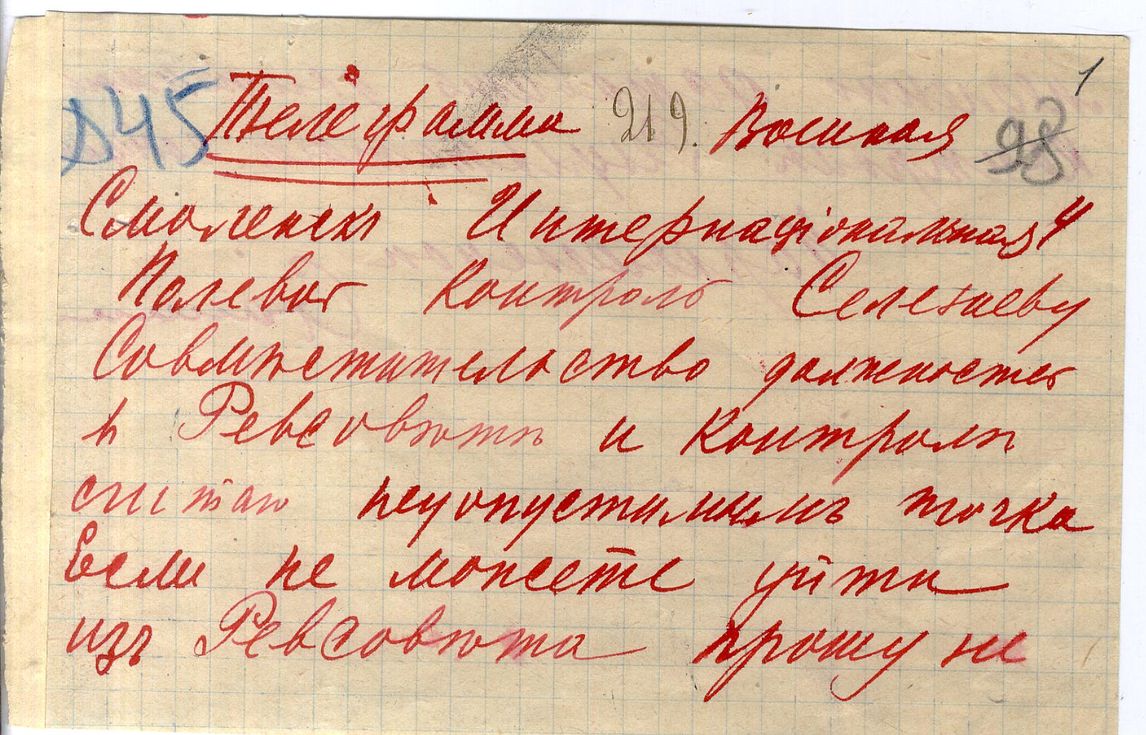 1
№45 Телеграмма 219. Военная 98
Смоленскъ Интернаціональная 4
Полевой Контроль Селезневу
Совмѣстительство должностей
в Ревсовѣтѣ и Контролѣ
считаю недопустимымъ точка
Если не можете уйти
изъ Ревсовѣта прошу не